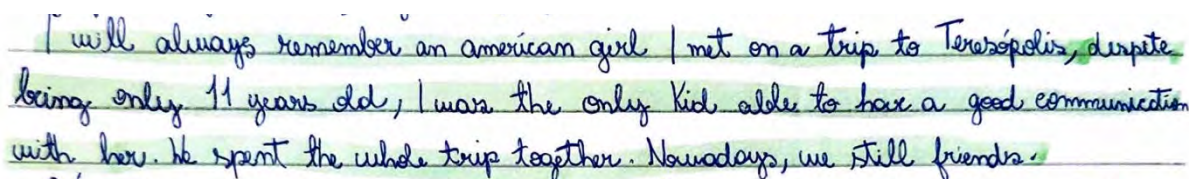 I will always remember an american girl I met on a trip to Teresópolis, despite
being only 11 years old, I was the only Kid able to have a good communication
with her. We spent the whole trip together. Nowadays, we still friends.